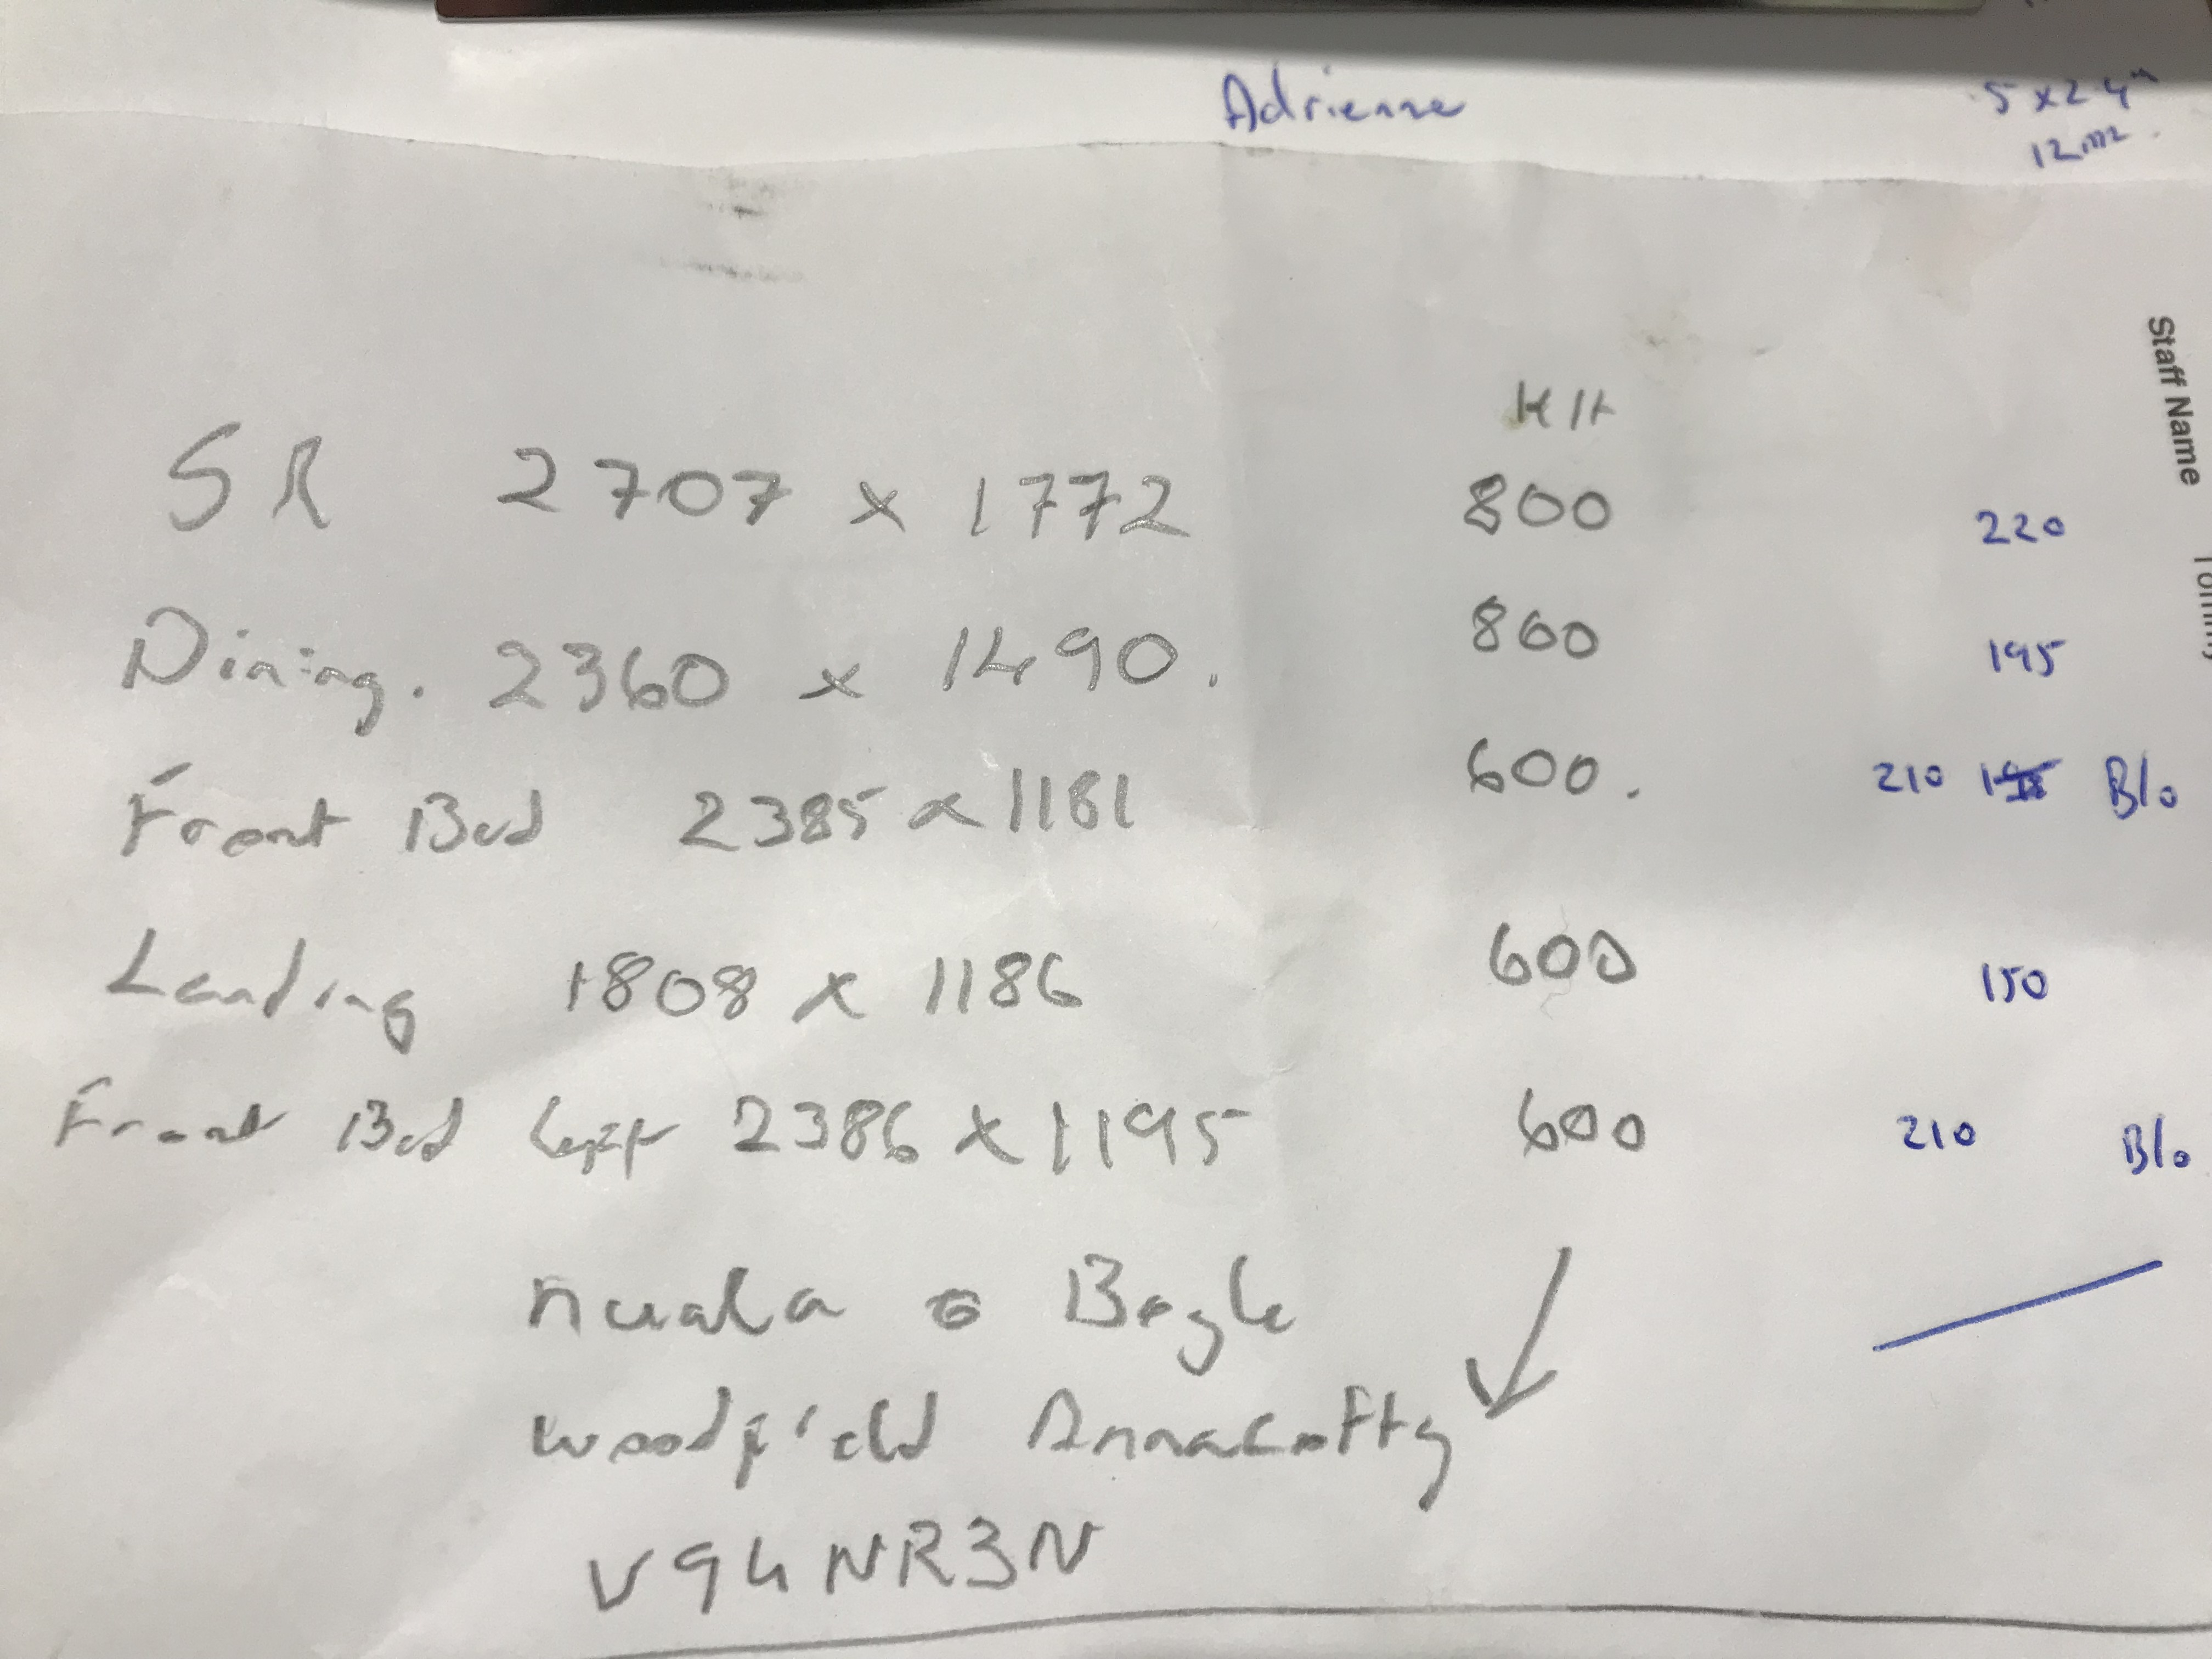 Adrienne 5 x 2.4m
12m2.
Staff Name
H H
SR 2707 x 1772 800 220
Dining. 2360 x 1490. 800 195
Front Bed 2385 x 1181 600. 210 B/o
Landing 1808 x 1186 600 150
Front Bed Left 2386 x 1195 600 210 B/o
nuala o Boyle
woodfield Annacotty
V94NR3N